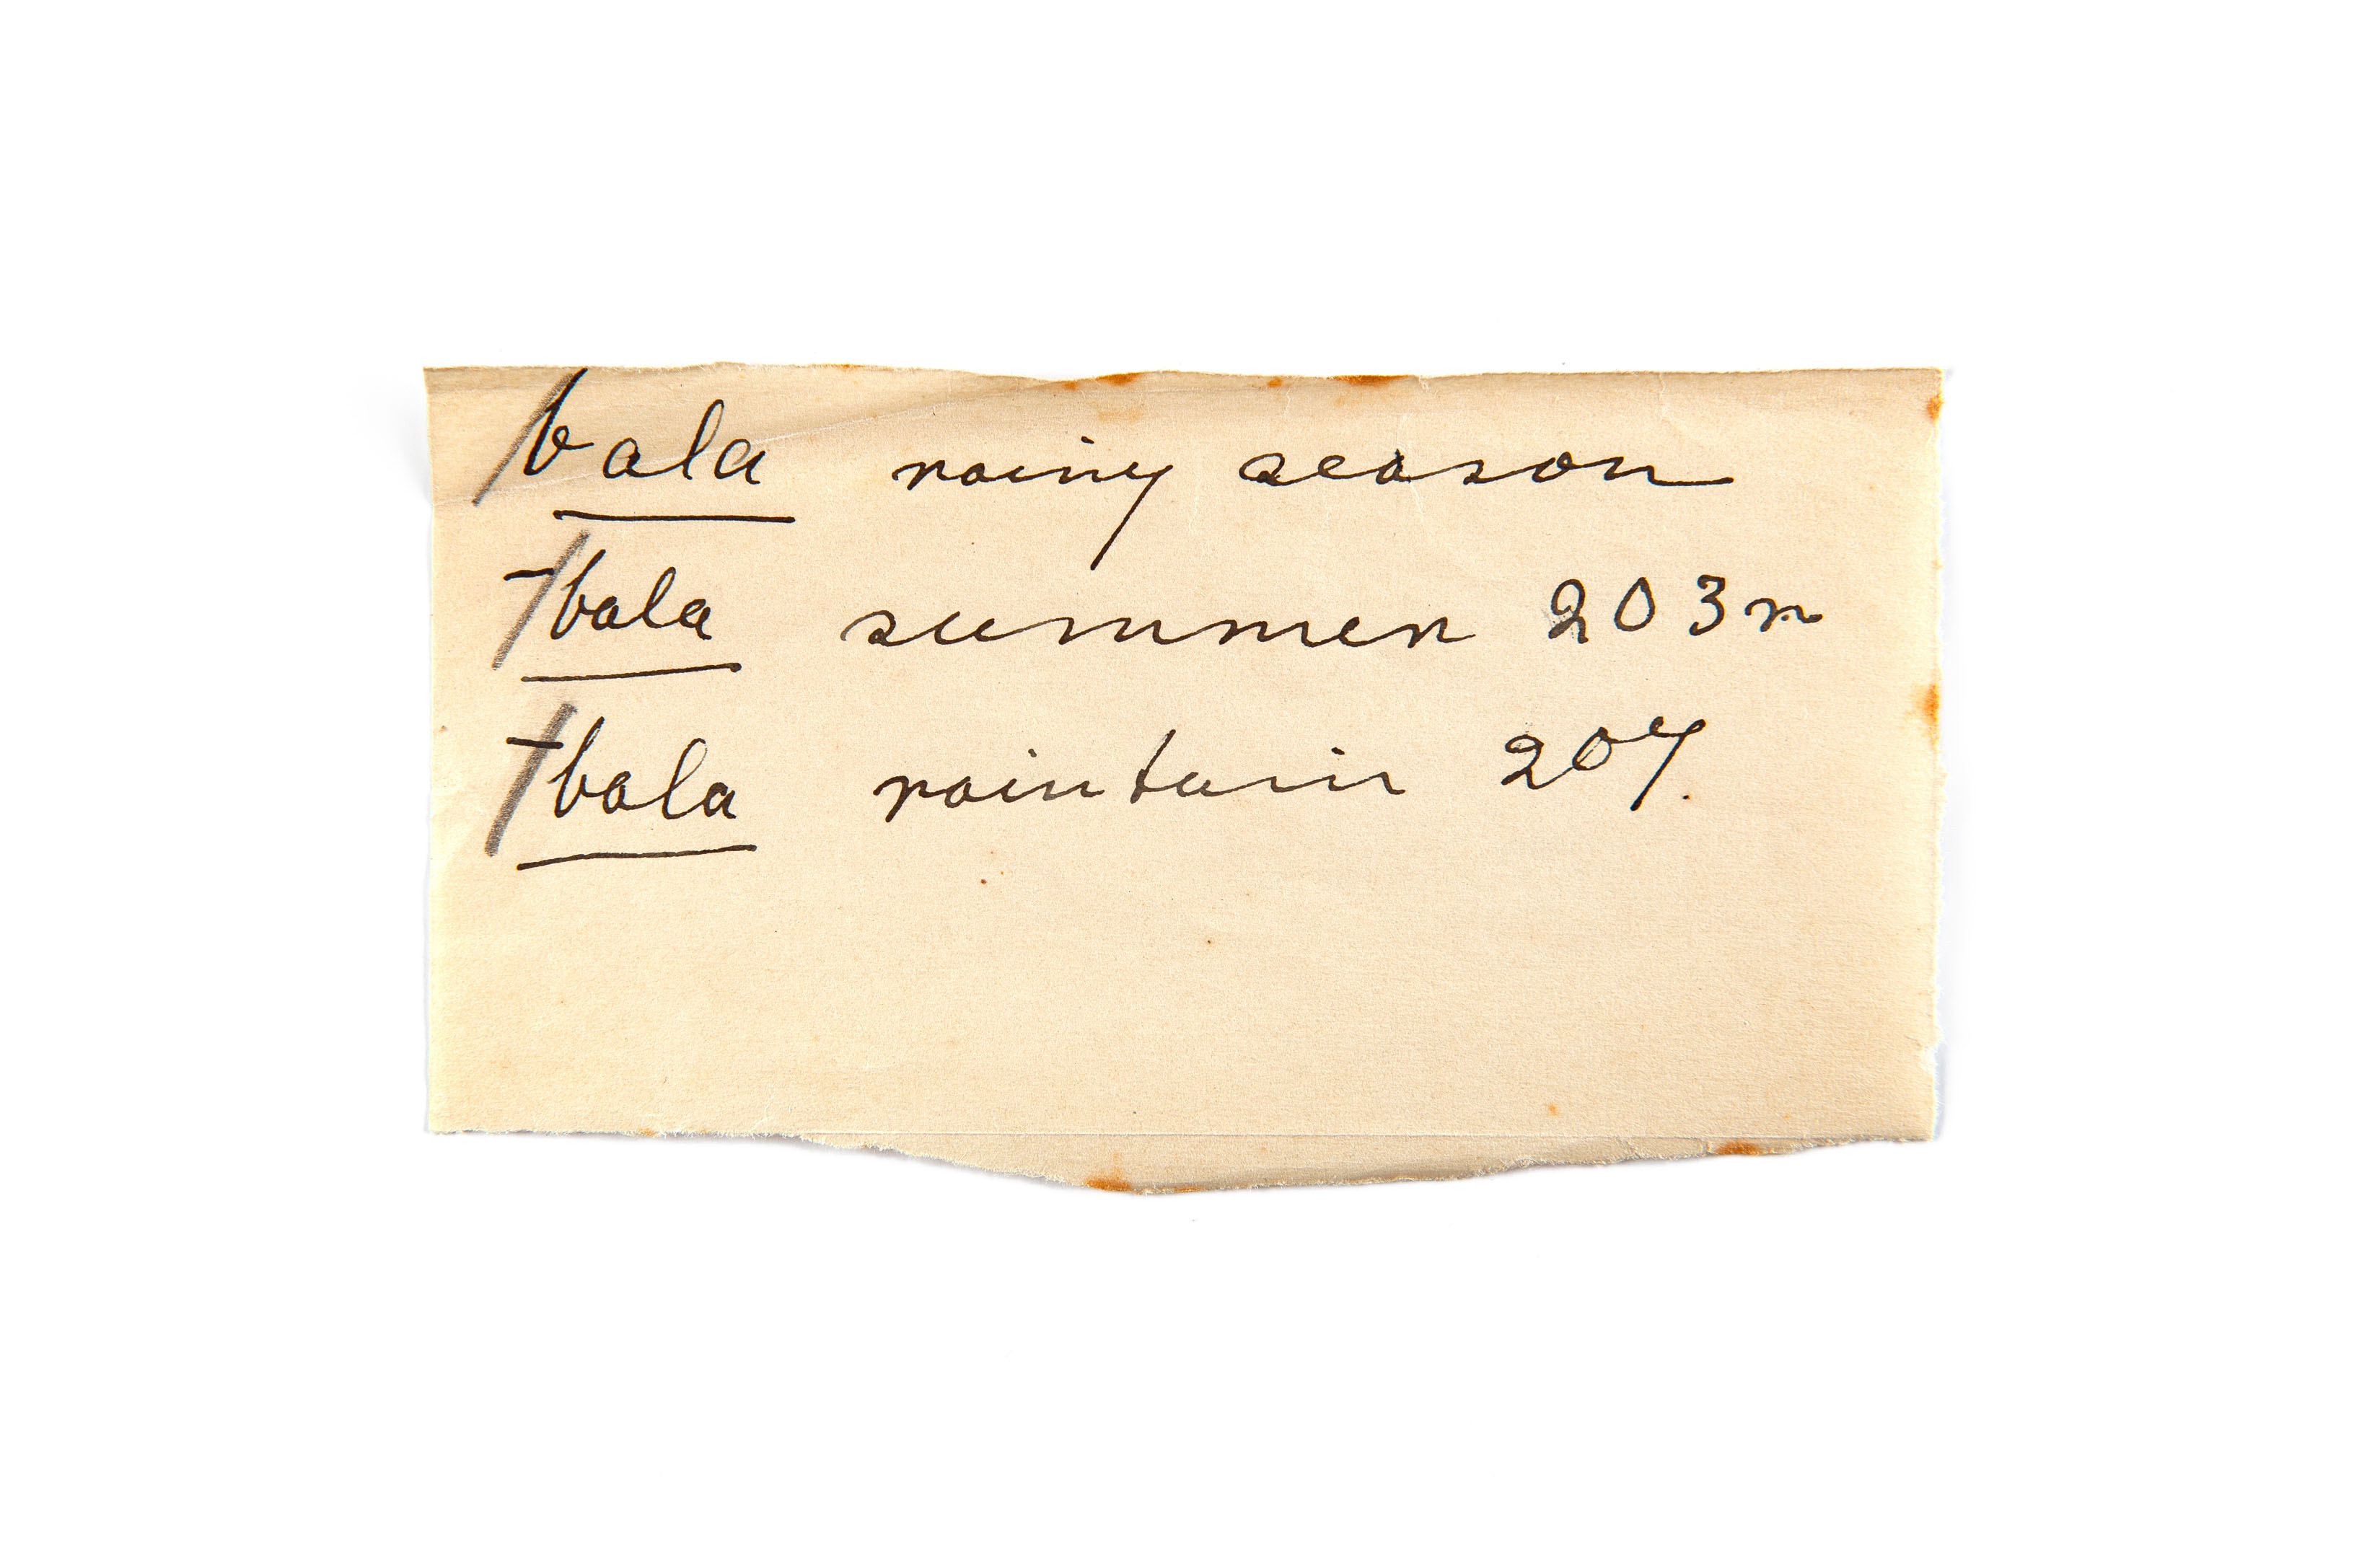 bala rainy season
-bala summer 203r
-bala raintain 207.